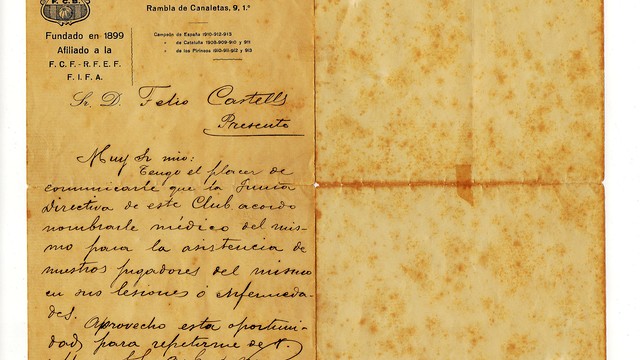 F.C.B.
Rambla de Canaletas, 9, 1.º
Fundado en 1899
Afiliado a la
F. C. F. - R. F. E. F.
F. I. F. A.
Campeón de España 1910-912-913
» de Cataluña 1908-909-910 y 911
» de los Pirineos 1910-911-912 y 913
Sr. D. Felio Castells
Presente
Muy Sr mio:
Tengo el placer de
comunicarle que la Junta
Directiva de este Club acordo
nombrarle médico del mis-
mo para la asistencia de
nuestros jugadores del mismo
en sus lesiones ó enfermeda-
des.
Aprovecho esta oportuni-
dad para repetirme de V.